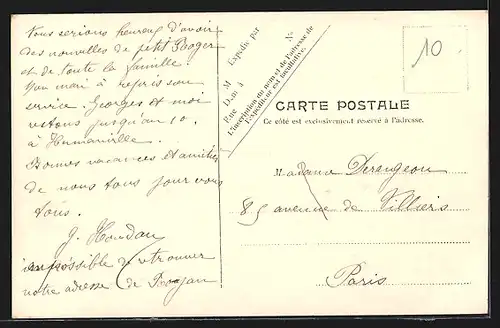 Nous serions heureux d'avoir
des nouvelles de petit Roger
et de toute la famille.
Mon mari à repris son
service. Georges et moi
restons jusqu'au 10.
à
Bonnes vacances et amitiés
de nous tous pour vous
tous.
J. Houdan
impossible de retrouver
votre adresse de Royan
M
Expédié par
N°
Rue
D.m à
L'inscription du nom et de l'adresse de
l'expéditeur est facultative.
10
CARTE POSTALE
Ce côté est exclusivement réservé à l'adresse.
Madame
85 avenue de Villiers
Paris